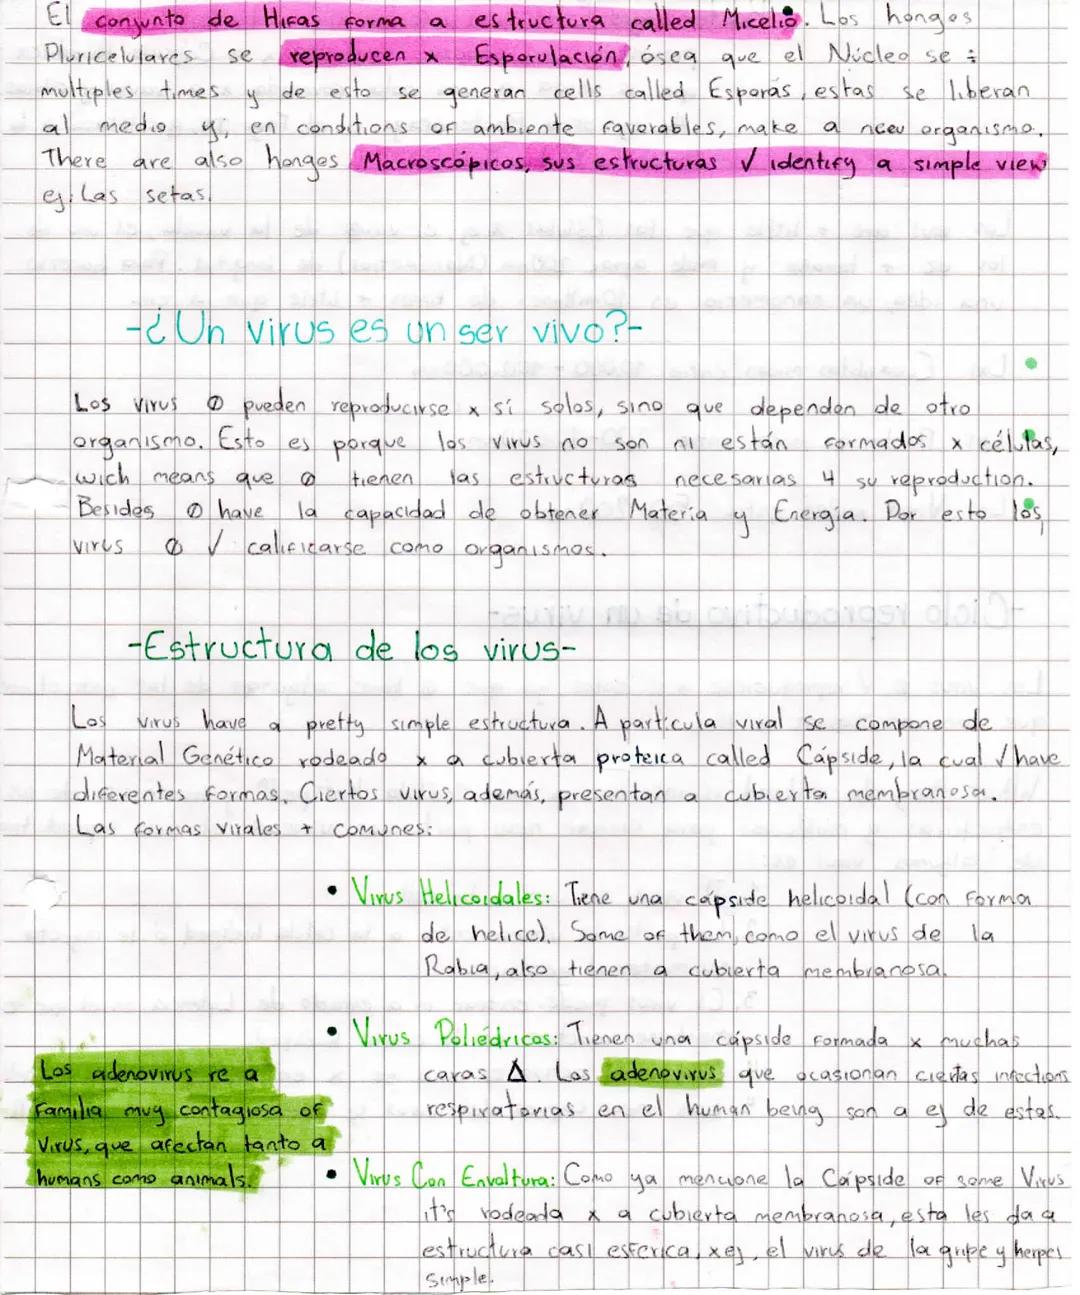 El conjunto de Hifas forma a estructura called Micelio. Los hongos
Pluricelulares se reproducen x Esporulación, ósea que el Núcleo se ÷
multiples times y de esto se generan cells called Esporas, estas se liberan
al medio y, en conditions of ambiente favorables, make a new organismo.
There are also honges Macroscópicos, sus estructuras √ identify a simple view
ej: Las setas.
-¿Un virus es un ser vivo?-
Los virus Ø pueden reproducirse x sí solos, sino que dependen de otro
organismo. Esto es porque los virus no son ni están formados x células,
wich means que Ø tienen las estructuras necesarias 4 su reproduction.
Besides Ø have la capacidad de obtener Materia y Energía. Por esto los
virus Ø √ calificarse como organismos.
-Estructura de los virus-
Los virus have a pretty simple estructura. A partícula viral se compone de
Material Genético rodeado x a cubierta proteica called Cápside, la cual √ have
diferentes formas. Ciertos virus, además, presentan a cubierta membranosa.
Las formas virales + comunes:
• Virus Helicoidales: Tiene una cápside helicoidal (con forma
de helice). Some of them, como el virus de la
Rabia, also tienen a cubierta membranosa.
• Virus Poliédricos: Tienen una cápside formada x muchas
caras Δ. Los adenovirus que ocasionan ciertas infections
respiratorias en el human being son a ej de estas.
Los adenovirus re a
familia muy contagiosa of
Virus, que afectan tanto a
humans como animals.
• Virus Con Envoltura: Como ya mencione la Cápside of some Virus
it's rodeada x a cubierta membranosa, esta les da a
estructura casi esferica, x ej, el virus de la gripe y herpes
simple.